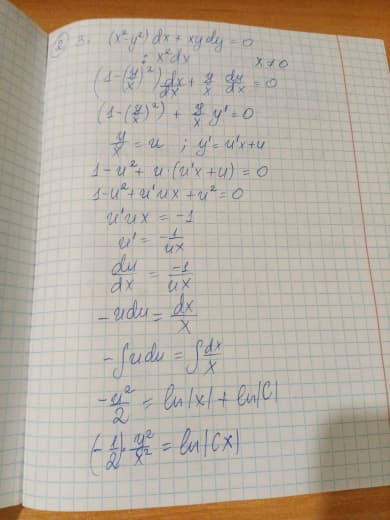 ② 3. (x² y²) dx + xy dy = 0
: x² dx x ≠ 0
(1 - (y/x)²) dx/dx + y/x dy/dx = 0
(1 - (y/x)²) + y/x y' = 0
y/x = u ; y' = u'x + u
1 - u² + u · (u'x + u) = 0
1 - u² + u'ux + u² = 0
u'ux = -1
u' = -1/ux
du/dx = -1/ux
- u du = dx/x
- ∫ u du = ∫ dx/x
- u²/2 = ln|x| + ln|C|
(- 1/2) · y²/x² = ln|Cx|